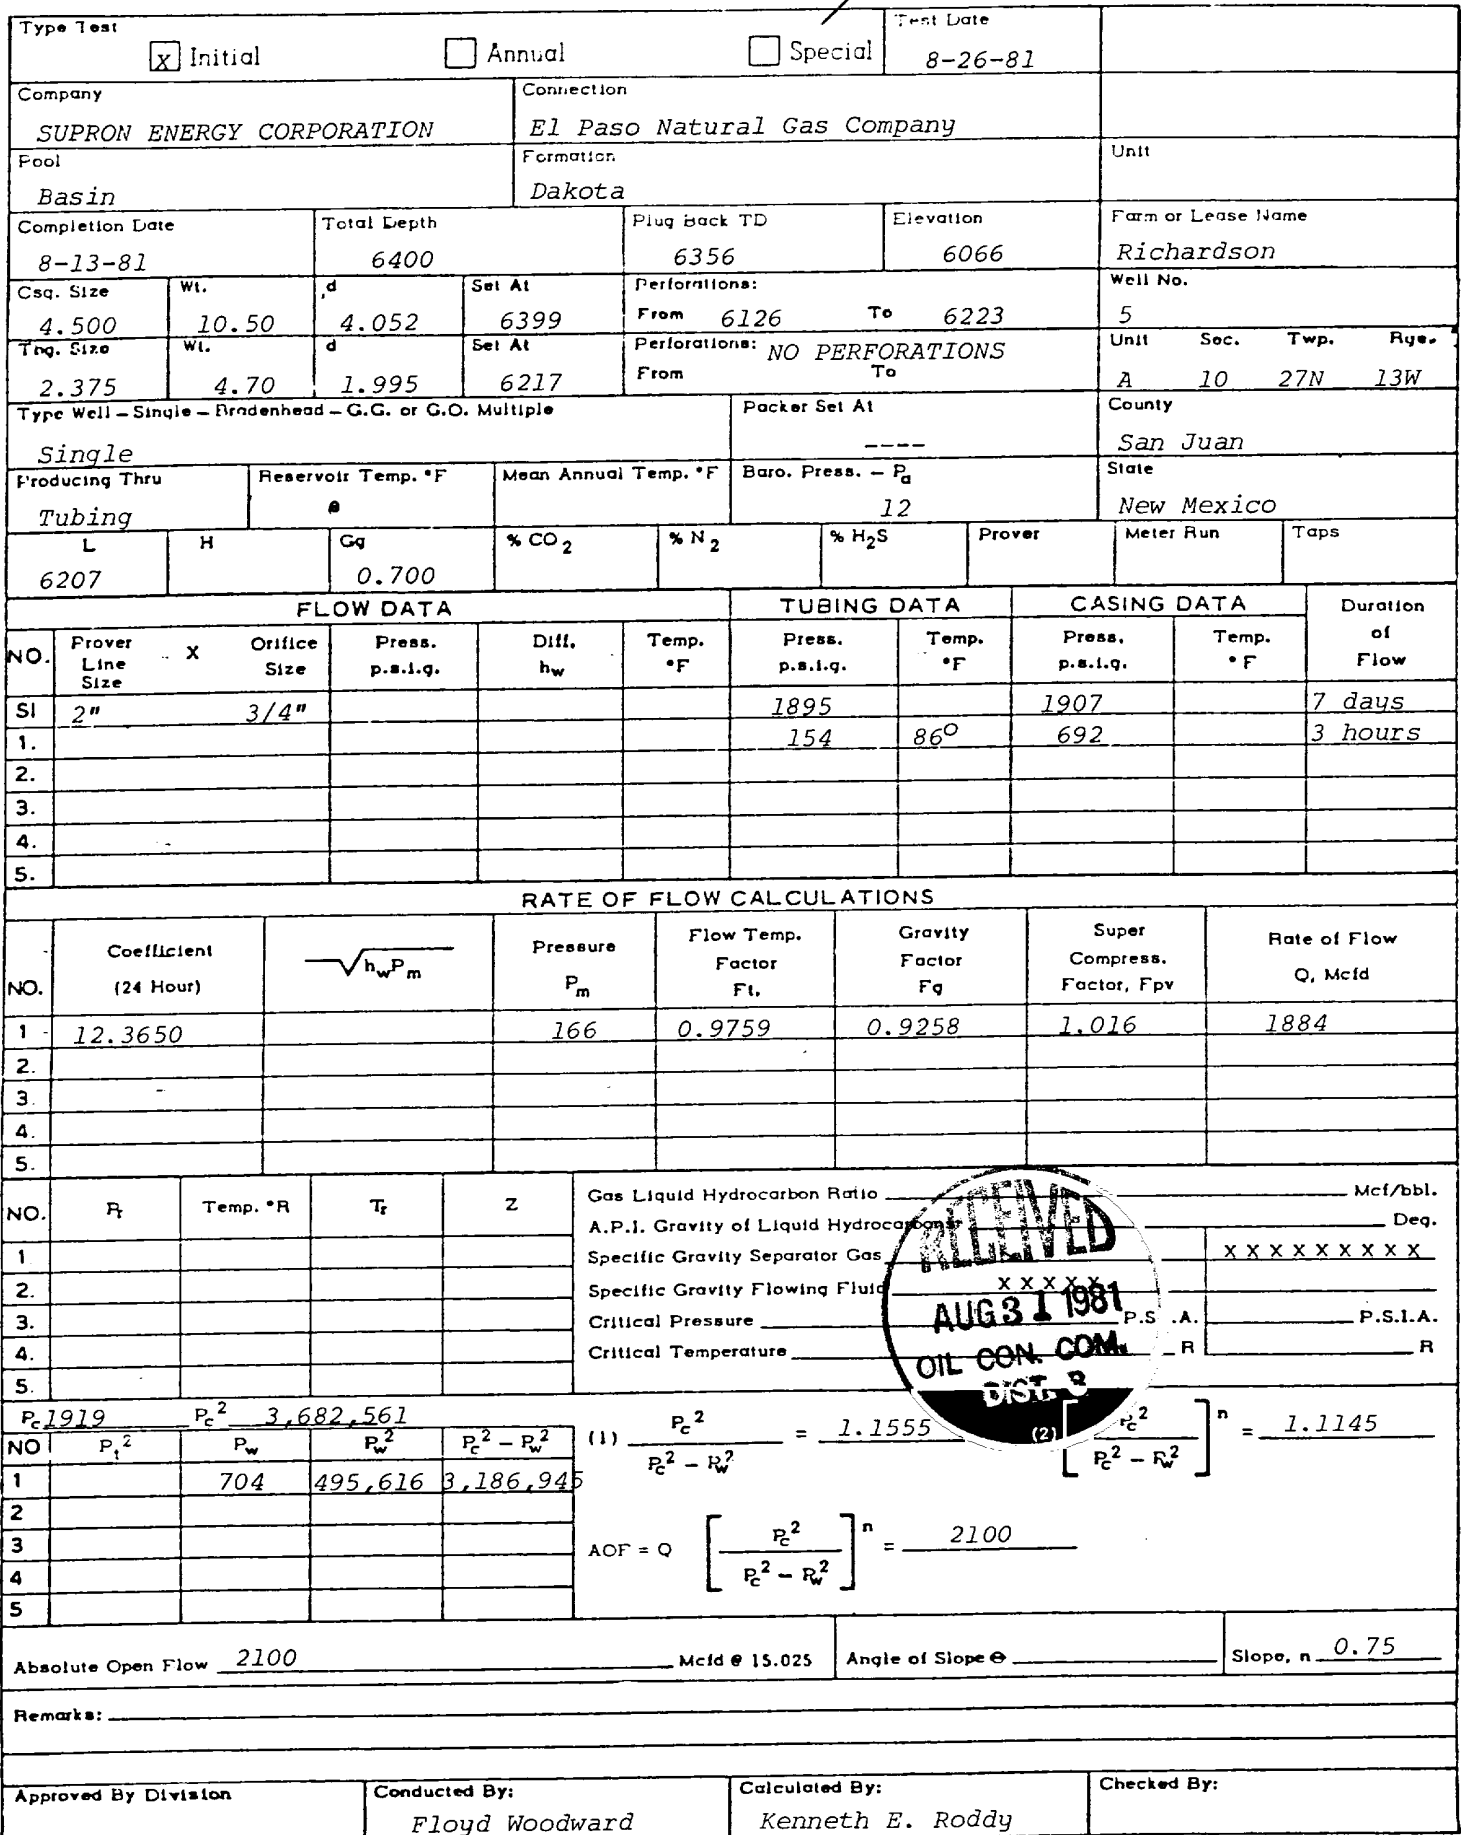 Type Test
x Initial Annual Special
Test Date
8-26-81
Company
SUPRON ENERGY CORPORATION
Connection
El Paso Natural Gas Company
Pool
Basin
Formation
Dakota
Unit
Completion Date
8-13-81
Total Depth
6400
Plug Back TD
6356
Elevation
6066
Farm or Lease Name
Richardson
Csg. Size Wt. d Set At
4.500 10.50 4.052 6399
Perforations:
From 6126 To 6223
Well No.
5
Tbg. Size Wt. d Set At
2.375 4.70 1.995 6217
Perforations: NO PERFORATIONS
From To
Unit Sec. Twp. Rge.
A 10 27N 13W
Type Well – Single – Bradenhead – G.G. or G.O. Multiple
Single
Packer Set At
----
County
San Juan
Producing Thru
Tubing
Reservoir Temp. °F
Mean Annual Temp. °F
Baro. Press. – Pa
12
State
New Mexico
L H Gg % CO2 % N2 % H2S Prover Meter Run Taps
6207 0.700
FLOW DATA TUBING DATA CASING DATA Duration of Flow
NO. Prover Line Size X Orifice Size Press. p.s.i.g. Diff. hw Temp. °F Press. p.s.i.g. Temp. °F Press. p.s.i.g. Temp. °F
SI 2" 3/4" 1895 1907 7 days
1. 154 86° 692 3 hours
2.
3.
4.
5.
RATE OF FLOW CALCULATIONS
NO. Coefficient (24 Hour) √hwPm Pressure Pm Flow Temp. Factor Ft. Gravity Factor Fg Super Compress. Factor, Fpv Rate of Flow Q, Mcfd
1 12.3650 166 0.9759 0.9258 1.016 1884
2.
3.
4.
5.
NO. Pr Temp. °R Tr Z
1
2.
3.
4.
5.
Gas Liquid Hydrocarbon Ratio Mcf/bbl.
A.P.I. Gravity of Liquid Hydrocarbons Deg.
Specific Gravity Separator Gas X X X X X X X X X
Specific Gravity Flowing Fluid X X X X X
Critical Pressure P.S.I.A. P.S.I.A.
Critical Temperature R R
RECEIVED
AUG 31 1981
OIL CON. COM.
DIST. 3
Pc 1919 Pc² 3,682,561
NO Pt² Pw Pw² Pc² – Pw²
1 704 495,616 3,186,945
2
3
4
5
(1) Pc² / Pc² – Pw² = 1.1555
(2) [ Pc² / Pc² – Pw² ]n = 1.1145
AOF = Q [ Pc² / Pc² – Pw² ]n = 2100
Absolute Open Flow 2100 Mcfd @ 15.025 Angle of Slope Θ Slope, n 0.75
Remarks:
Approved By Division
Conducted By:
Floyd Woodward
Calculated By:
Kenneth E. Roddy
Checked By: